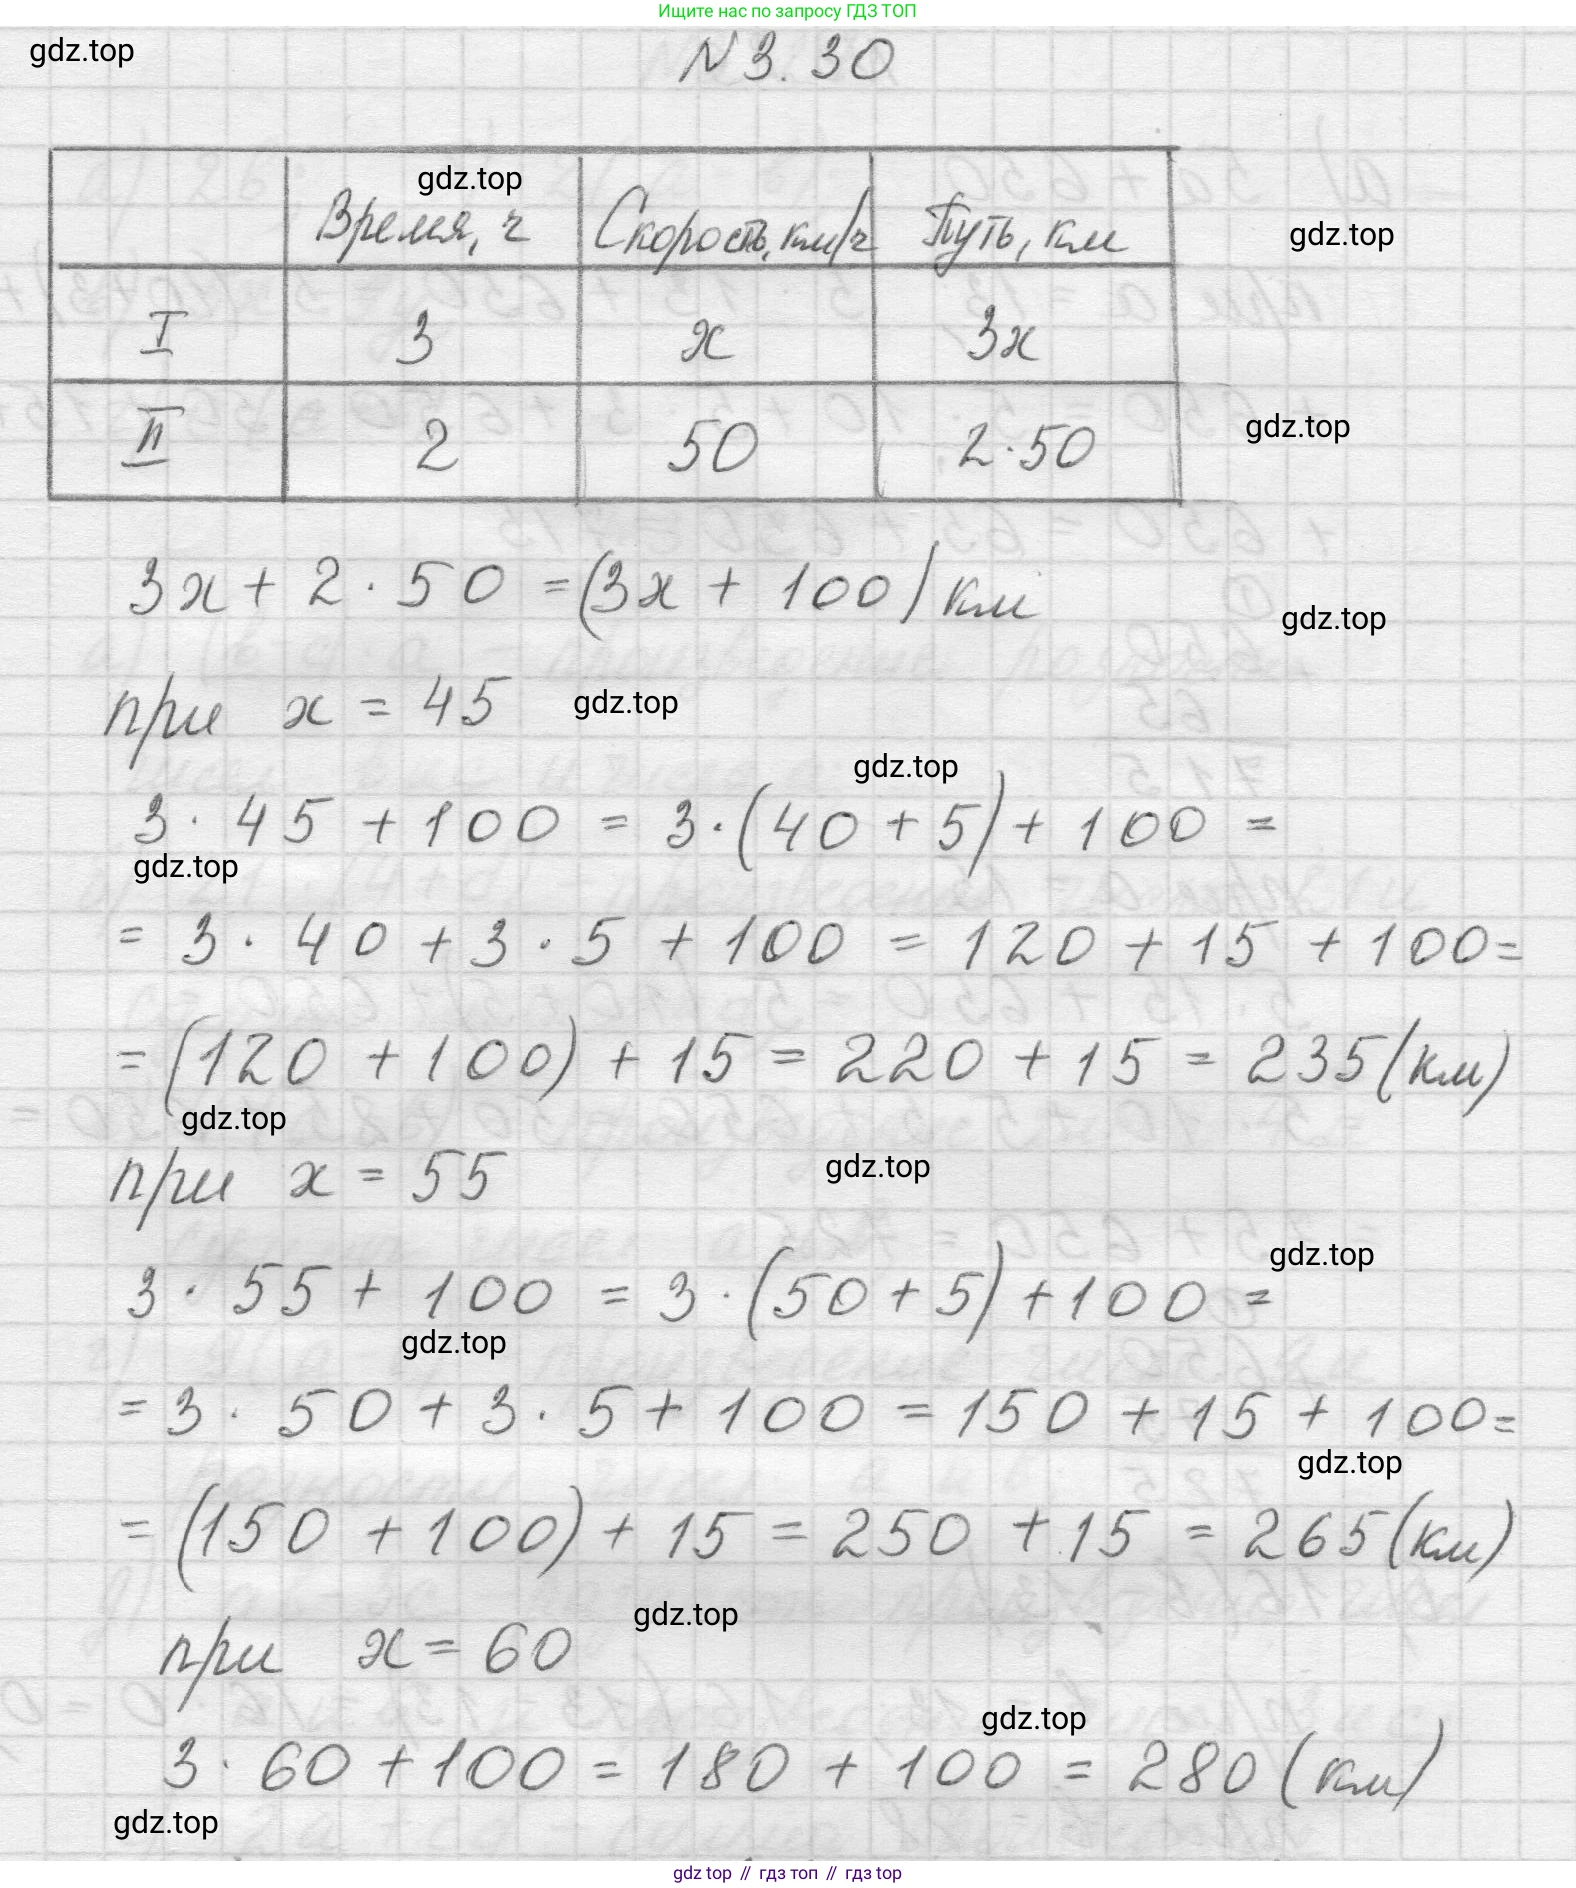 Ищите нас по запросу ГДЗ ТОП
gdz.top
N 3.30
gdz.top
Время, ч Скорость, км/ч Путь, км
gdz.top
I 3 x 3x
II 2 50 2·50
gdz.top
3x + 2 · 50 = (3x + 100) км
gdz.top
при x = 45
gdz.top
gdz.top
3 · 45 + 100 = 3 · (40 + 5) + 100 =
gdz.top
= 3 · 40 + 3 · 5 + 100 = 120 + 15 + 100 =
= (120 + 100) + 15 = 220 + 15 = 235 (км)
gdz.top
при x = 55
gdz.top
gdz.top
3 · 55 + 100 = 3 · (50 + 5) + 100 =
gdz.top
= 3 · 50 + 3 · 5 + 100 = 150 + 15 + 100 =
gdz.top
= (150 + 100) + 15 = 250 + 15 = 265 (км)
gdz.top
при x = 60
gdz.top
3 · 60 + 100 = 180 + 100 = 280 (км)
gdz.top
gdz top // гдз топ // гдз top